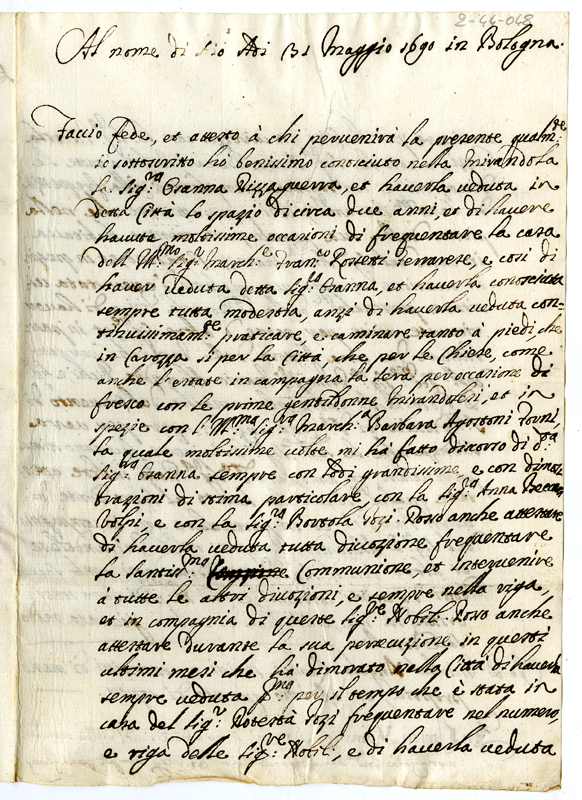 2-44-048
Al nome di Dio Adi 31 Maggio 1690 in Bologna.
Faccio fede, et attesto à chi pervenirà la presente qualm:te
io sottoscritto hò benissimo conosciuto nella Mirandola
la Sig:ra Osanna Pizzaguerra, et haverla veduta in
detta Città lo spazio di circa due anni, et di havere
havute moltissime occasioni di frequentare la casa
dell' Ill:mo Sig:r March:e Fran:co Rossetti ferrarese, e così di
haver veduta detta Sig:ra Osanna, et haverla conosciuta
sempre tutta modestia, anzi di haverla veduta con=
tinuissimam:te praticare, e caminare tanto à piedi che
in Carozza si per la Città, che per le Chiese, come
anche l'estate in campagna la sera per occasione di
fresco con le prime gentildonne Mirandolesi, et in
spezie con l'Ill:ma Sig:ra March:a Barbara Agostoni
la quale moltissime volte mi hà fatto discorso di d:ta
Sig:ra Osanna sempre con lodi grandissime, e con dimos
trazioni di stima particolare, con la Sig:ra Anna
Volpi, e con la Sig:ra Bortola Tozi. Posso anche attestare
di haverla veduta tutta divozione frequentare
la Santis:mo Communione, et intervenire
à tutte le altri divozioni, e sempre nella riga,
et in compagnia di queste Sig:re Nobili. Posso anche
attestare durante la sua persecuzione in questi
ultimi mesi che hà dimorato nella Città di haverla
sempre veduta per il tempo che è stata in
casa del Sig:r Roberto Tozi frequentare nel numero,
e riga delle Sig:re Nobili, e di haverla veduta